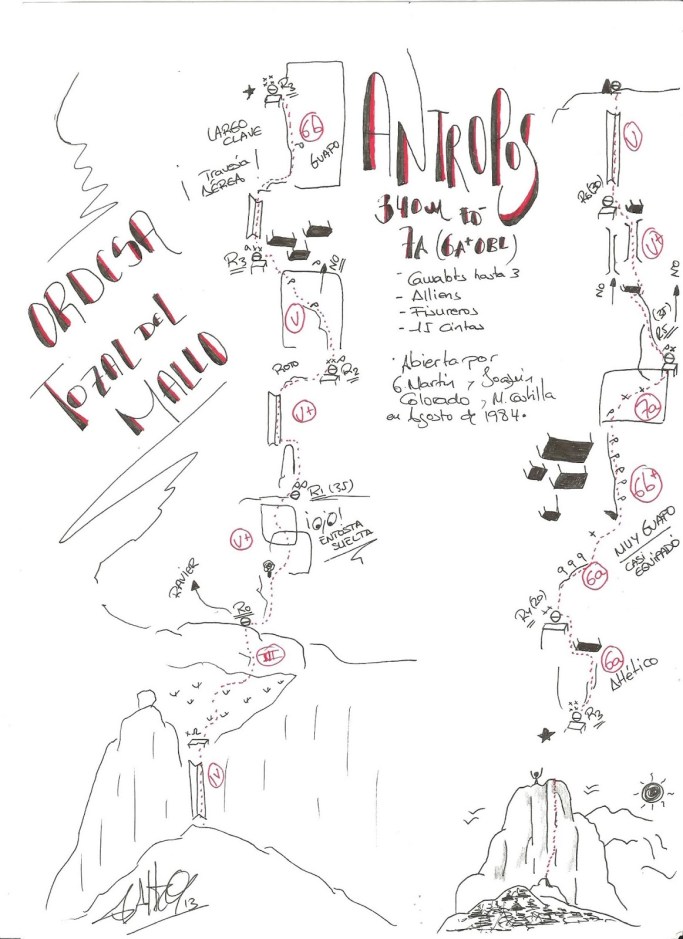 ANTROPOS
340m ED-
7A (6A+ OBL)
- Camalots hasta 3
- Alliens
- Fisureros
- 15 Cintas
· Abierta por
G. Martín y Joaquín
Colorado, M. Castilla
en Agosto de 1984.
ORDESA
TOZAL DEL
MALLO
R3
LARGO
CLAVE
6b
GUAPO
Travesía
AÉREA
R3
NO
V
R2
ROTO
V+
R1 (35)
¡OJO!
EMPOSTA
SUELTA
V+
RAVIER
R0
III
IV
13
V
R6 (30)
V+
NO
NO
(35)
R5
7a
6b+
MUY GUAPO
CASI
EQUIPADO
6a
R4 (20)
6a
Atlético
R3